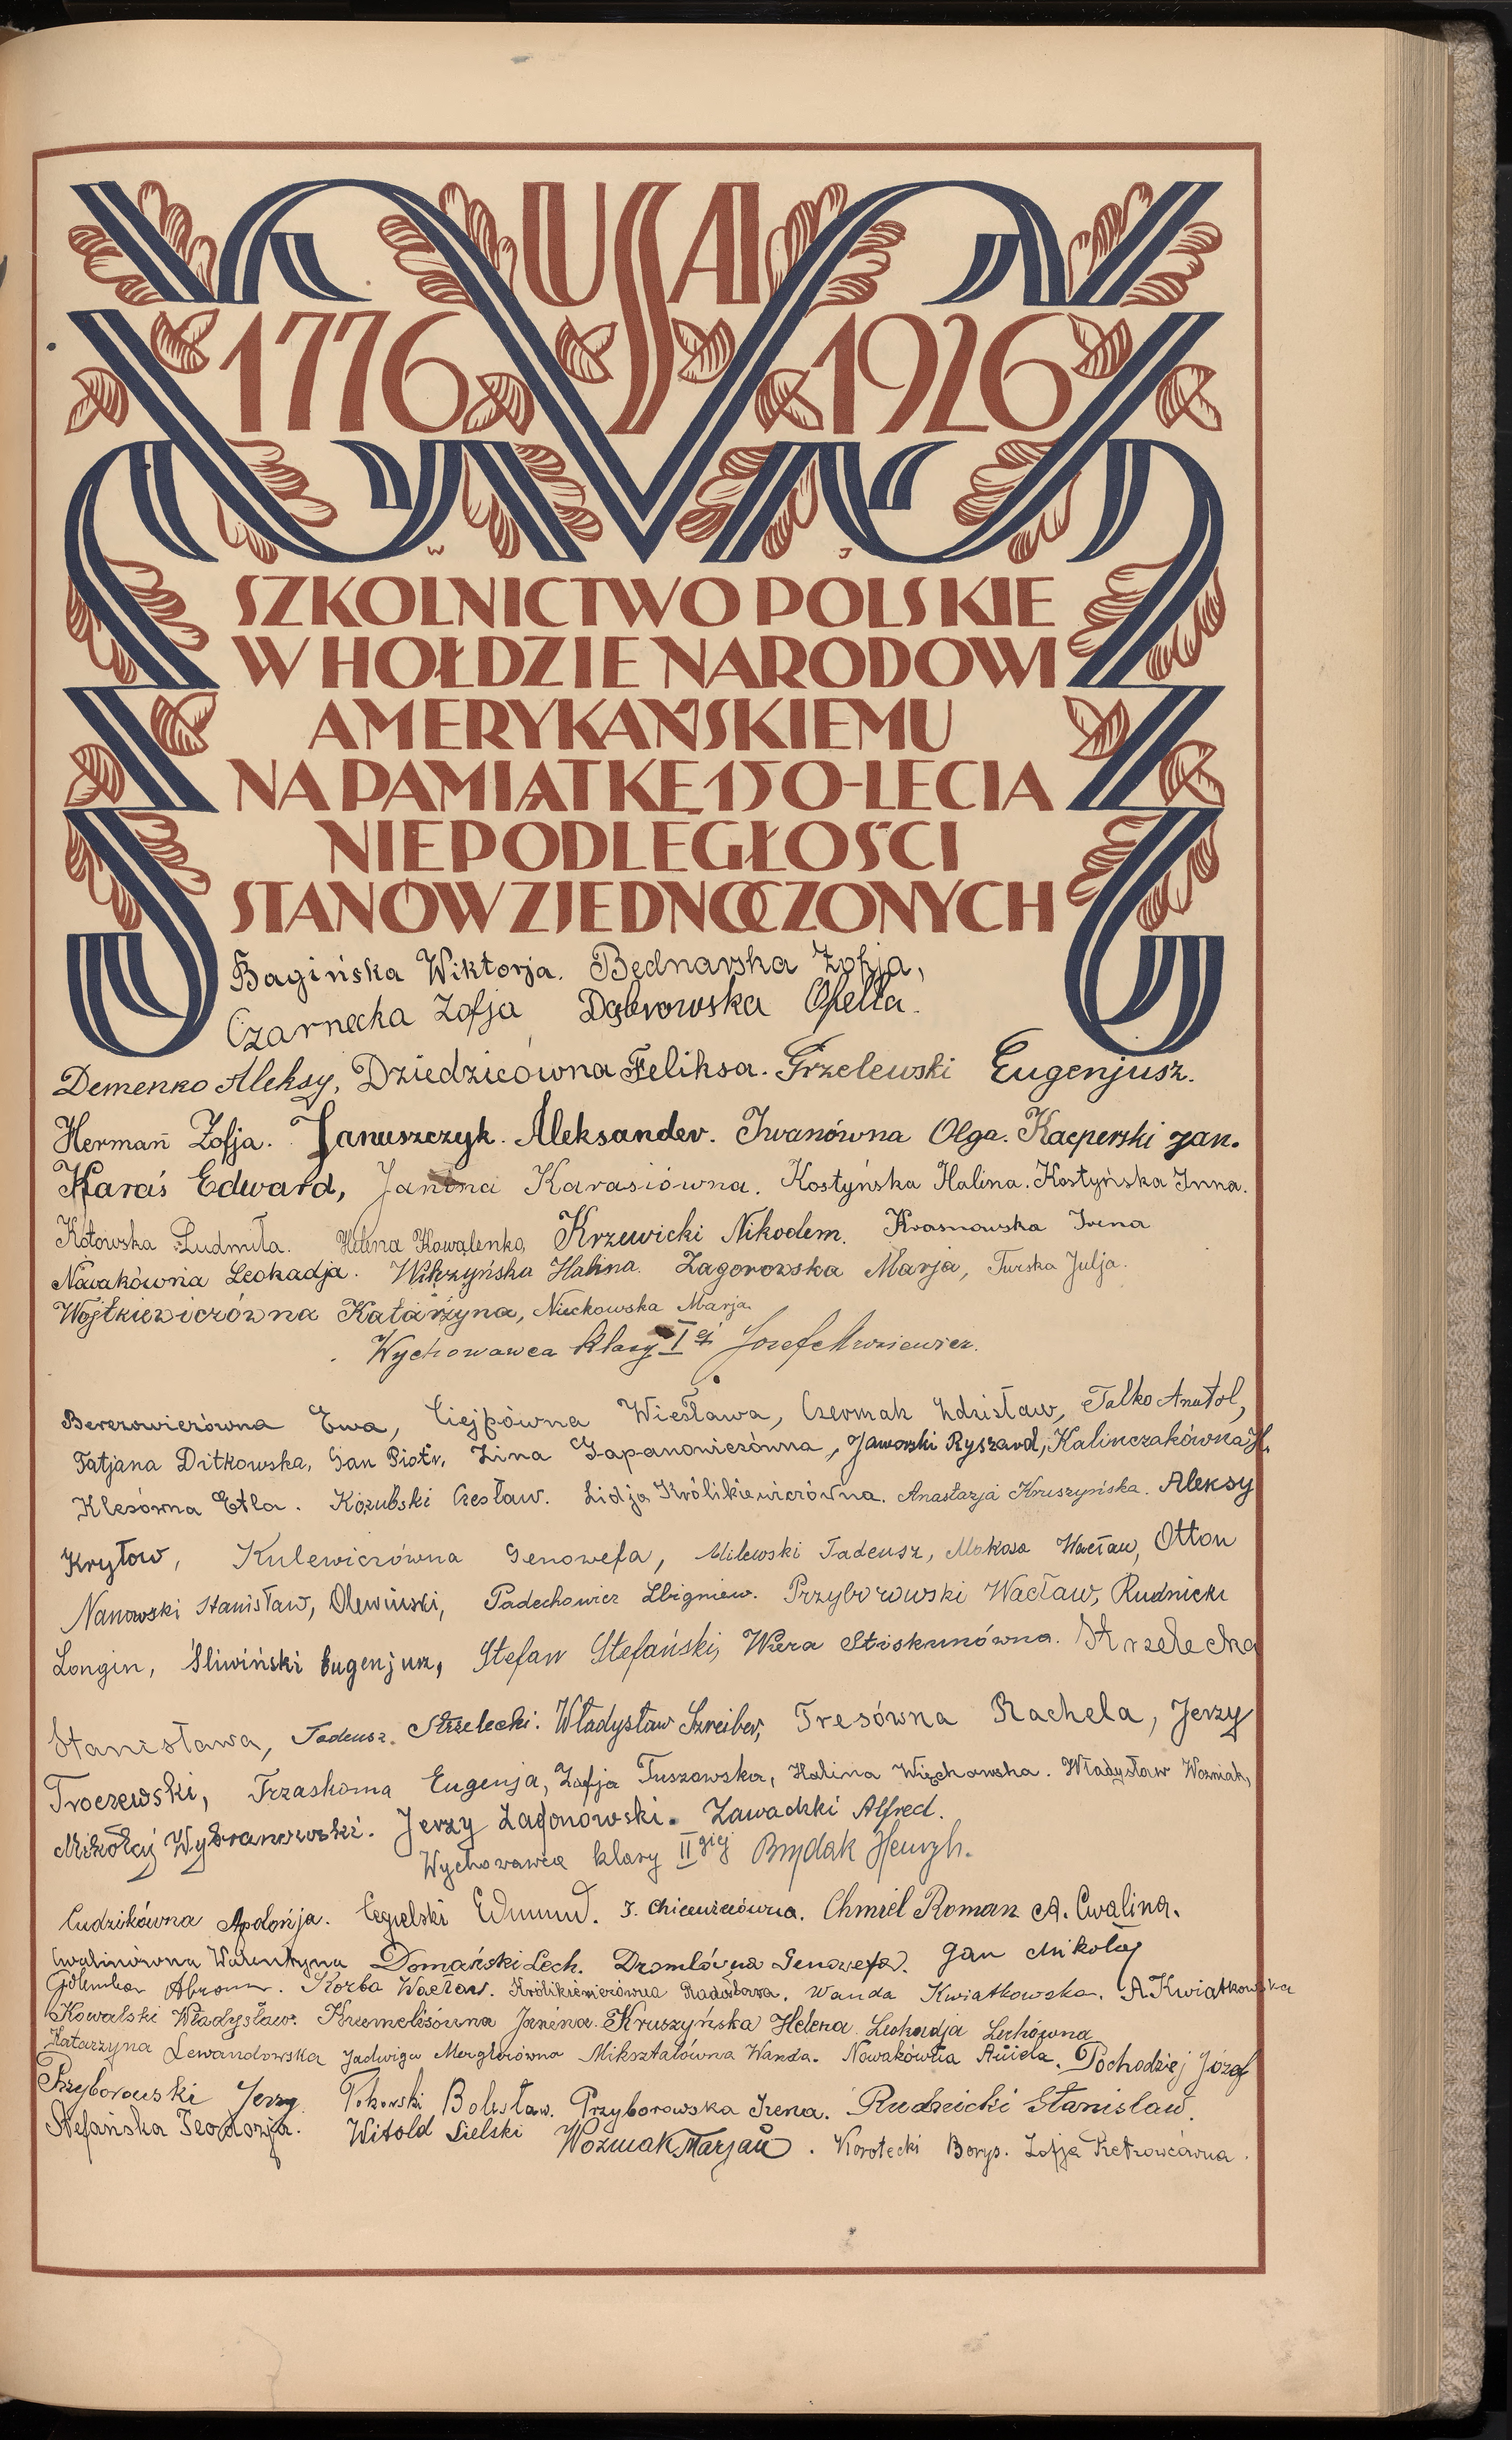 USA
1776 1926
W J
SZKOLNICTWO POLSKIE
W HOŁDZIE NARODOWI
AMERYKAŃSKIEMU
NA PAMIĄTKĘ 150-LECIA
NIEPODLEGŁOŚCI
STANÓW ZJEDNOCZONYCH
Bagińska Wiktorja. Bednarska Zofja,
Czarnecka Zofja Dąbrowska Ofelia.
Demenko Aleksy, Dziedzicówna Feliksa. Grzelewski Eugenjusz.
Herman Zofja. Januszczyk Aleksander. Iwanówna Olga. Kacperski Jan.
Karaś Edward, Janina Karasiówna. Kostyńska Halina. Kostyńska Inna.
Kotowska Ludmiła. Helena Kowalenko, Krzewicki Nikodem. Krasnowska Irena
Nowakówna Leokadja. Wilczyńska Halina. Zagorowska Marja, Turska Julja.
Wojtkiewiczówna Katarzyna, Nieckowska Marja.
Wychowawca klasy I ej Józef
Berezowiczówna Ewa, Ciejpówna Wiesława, Czermak Zdzisław, Talko Anatol,
Tatjana Ditkowska, Gan Piotr, Zina Gapanowiczówna, Jaworski Ryszard, Kalinczakówna H.
Klesówna Etla. Kozubski Czesław. Lidja Królikiewiczówna. Anastazja Kruszyńska. Aleksy
Kryłow, Kulewiczówna Genowefa, Milewski Tadeusz, Mokasa Wacław, Otton
Nanowski Stanisław, Olewiński, Padechowicz Zbigniew. Przyborowski Wacław, Rudnicki
Longin, Śliwiński Eugenjusz, Stefan Stefański, Wiera Stoskunówna. Strzelecka
Stanisława, Tadeusz Strzelecki. Władysław Szreiber, Tresówna Rachela, Jerzy
Troczewski, Trzaskoma Eugenja, Zofja Tuszowska, Halina Więchowska. Władysław Woźniak,
Mikołaj Wybranowski. Jerzy Zagonowski. Zawadzki Alfred.
Wychowawca klasy II giej Brydak Henryk.
Cudzikówna Apolonja. Cegielski Edmund. J. Chiewiczówna. Chmiel Roman A. Cwalina.
Cwalinówna Walentyna Domański Lech. Dromlówna Genowefa. Jan Mikołaj
Golemba Abram. Korba Wacław. Królikiewiczówna Radosława. Wanda Kwiatkowska. A. Kwiatkowska
Kowalski Władysław. Janina. Kruszyńska Helena Leokadja Lechówna
Katarzyna Lewandowska Jadwiga Merglowówna Miksztalówna Wanda. Nowakówna Aniela. Pochodziej Józef
Przyborowski Jerzy Bolesław. Przyborowska Irena. Rudnicki Stanisław.
Stefańska Teodozja. Witold Sielski Woźniak Marjan. Korotecki Borys. Zofja Pietrowcówna.